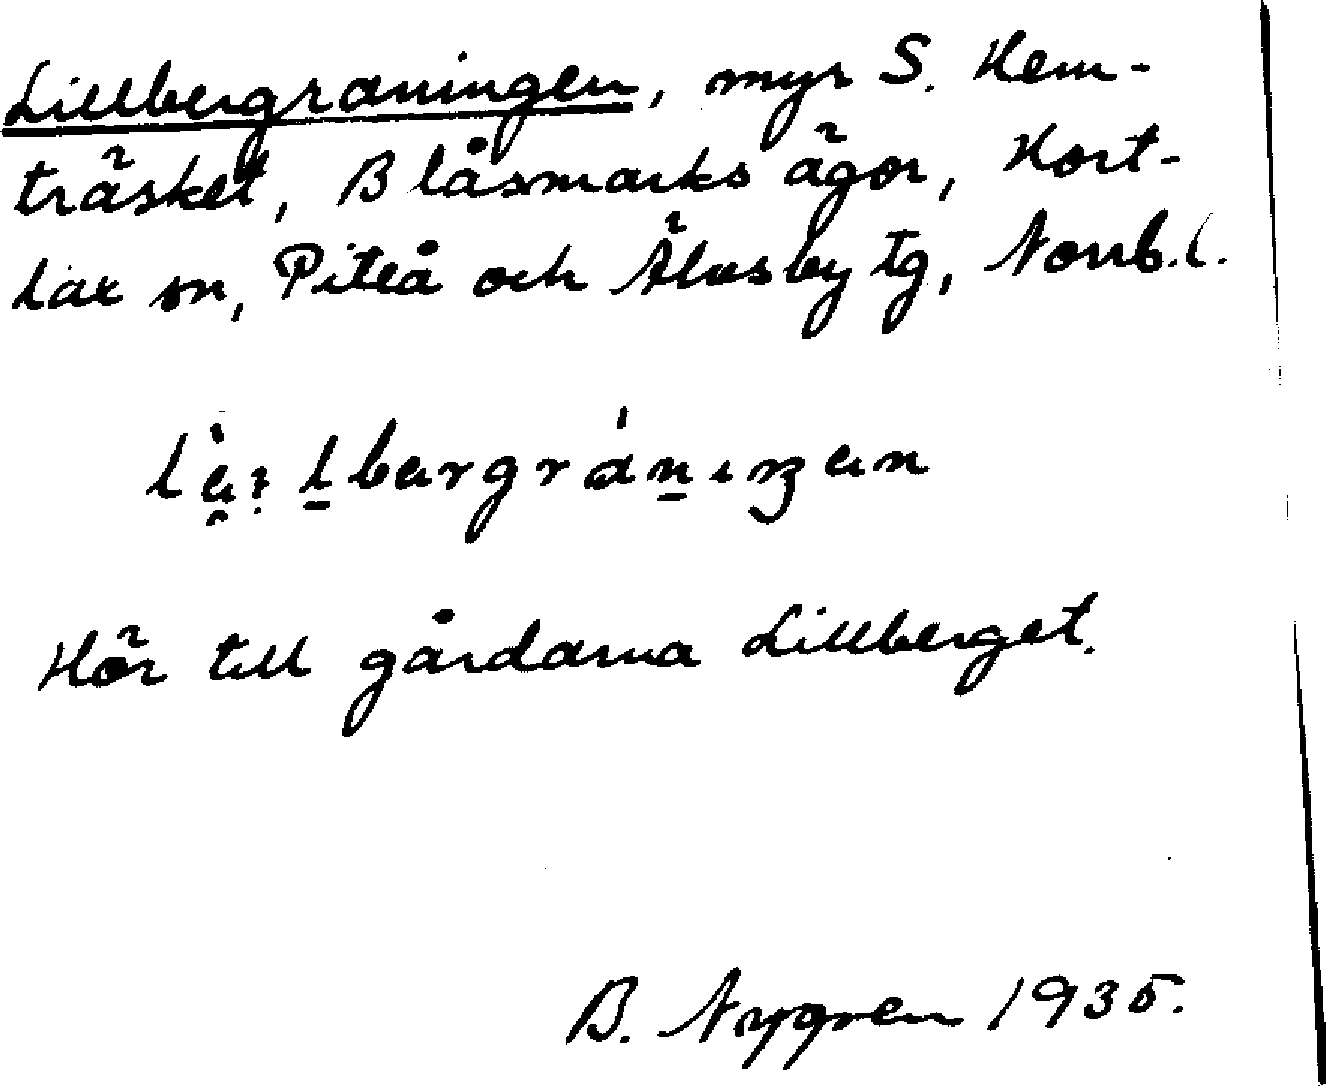 Lillbergraningen, myr S. Hem-
träsket, Blåsmarks ägor, Hort-
lax sn, Piteå och Älvsby tg, Norrb. l.
Hör till gårdarna Lillberget.
B. Nygren 1935.